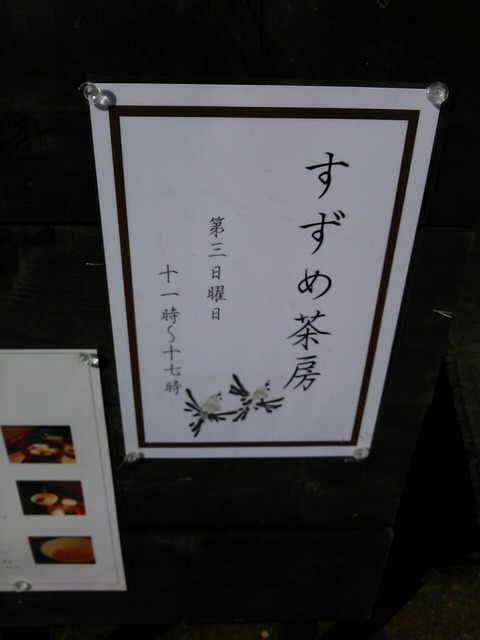 すずめ茶房
第三日曜日
十一時〜十七時